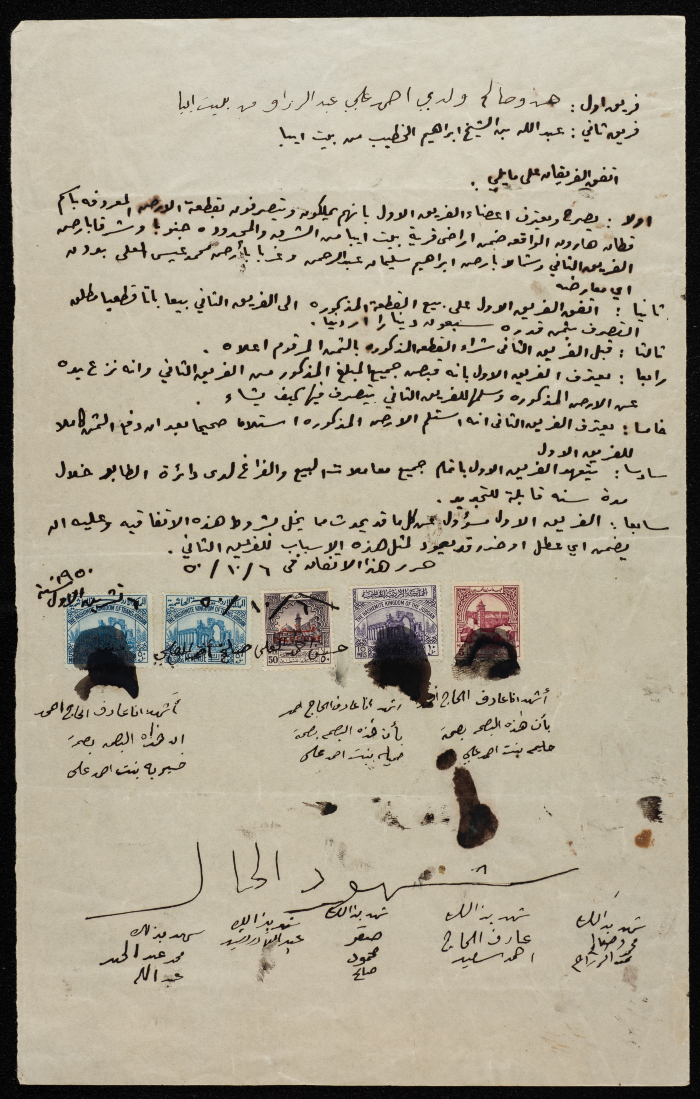 فريق اول : حسن وصالح ولدي احمد علي عبد الرزاق من بيت ايبا
فريق ثاني : عبد الله بن الشيخ ابراهيم الخطيب من بيت ايبا
اتفق الفريقان على مايلي .
اولا : يصرح ويعترف اعضاء الفريق الاول بانهم يملكون ويتصرفون بقطعة الارض المعروفه باسم
قطان هارون الواقعه ضمن اراضي قرية بيت ايبا من الشرق والمحدوده جنوبا وشرقا بارض
الفريق الثاني وشمالا بارض ابراهيم سليمان عبد الرحمن وغربا بأرض محمد عيسى المعلي بدون
اي معارضه
ثانيا : اتفق الفريق الاول على بيع القطعة المذكوره الى الفريق الثاني بيعا باتا قطعيا مطلق
التصرف بثمن قدره سبعون دينارا اردنيا .
ثالثا : قبل الفريق الثاني شراء القطعه المذكوره بالثمن المرقوم اعلاه .
رابعا : يعترف الفريق الاول بانه قبض جميع المبلغ المذكور من الفريق الثاني وانه نزع يده
عن الارض المذكوره وسلمها للفريق الثاني يتصرف فيها كيف يشاء .
خامسا : يعترف الفريق الثاني انه استلم الارض المذكوره استلاما صحيحا بعد ان دفع الثمن كاملا
للفريق الاول
سادسا : يتعهد الفريق الاول باتمام جميع معاملات البيع والفراغ لدى دائرة الطابو خلال
مدة سنه قابلة للتجديد .
سابعا : الفريق الاول مسؤول عن كل ما قد يحدث مما يخل بشروط هذه الاتفاقيه وعليه ان
يضمن اي عطل او ضرر قد يعود لمثل هذه الاسباب للفريق الثاني .
حرر هذا الاتفاق في ٦ / ١٠ / ٥٠
تشرين الاول سنة ١٩٥٠
٦ / ١٠ / ٥٠
THE HASHEMITE KINGDOM OF TRANSJORDAN
THE HASHEMITE KINGDOM OF TRANSJORDAN
50
THE HASHEMITE KINGDOM OF THE
حسن احمد العلي صالح احمد العلي
أشهد انا عارف الحاج احمد
بأن هذه البصمه بصمة
حليمه بنت احمد علي
اشهد انا عارف الحاج احمد
بأن هذه البصمه بصمة
بنت احمد علي
أشهد انا عارف الحاج احمد
ان هذه البصمه بصمة
خيريه بنت احمد علي
شهود الحال
شهد بذالك
شهد بذالك
عارف الحاج
احمد سعيد
شهد بذالك
صقر
محمود
صالح
شهد بذالك
شهد بذلك
محمد عبد الحمد
عبد الله